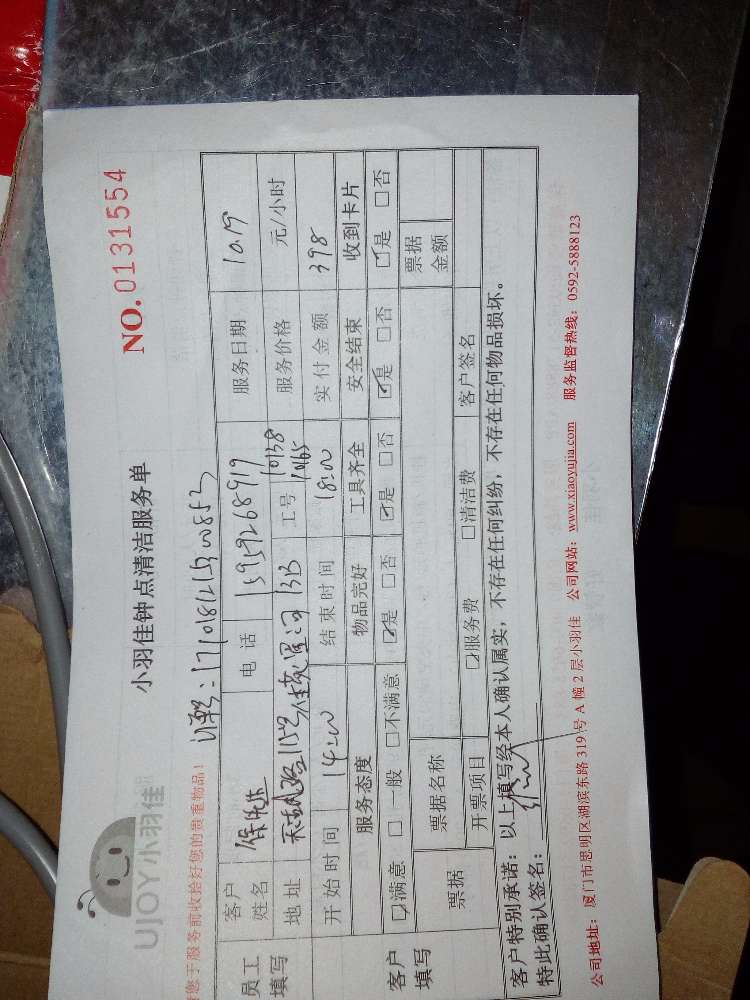 UJOY小羽佳
小羽佳钟点清洁服务单
NO.0131554
您于服务前收拾好您的贵重物品！
员工填写
客户姓名
电话 15959268919
服务日期 10.19
地址
工号 10138 10165
服务价格 元/小时
开始时间 14:00
结束时间 18:00
实付金额 398
客户填写
服务态度 物品完好 工具齐全 安全结束 收到卡片
☑满意 □一般 □不满意 ☑是 □否 ☑是 □否 ☑是 □否 ☑是 □否
票据 票据名称 票据金额
开票项目 ☑服务费 □清洁费 客户签名
客户特别承诺：以上填写经本人确认属实，不存在任何纠纷，不存在任何物品损坏。
特此确认签名：
公司地址：厦门市思明区湖滨东路319号A幢2层小羽佳 公司网站：www.xiaoyujia.com 服务监督热线：0592-5888123